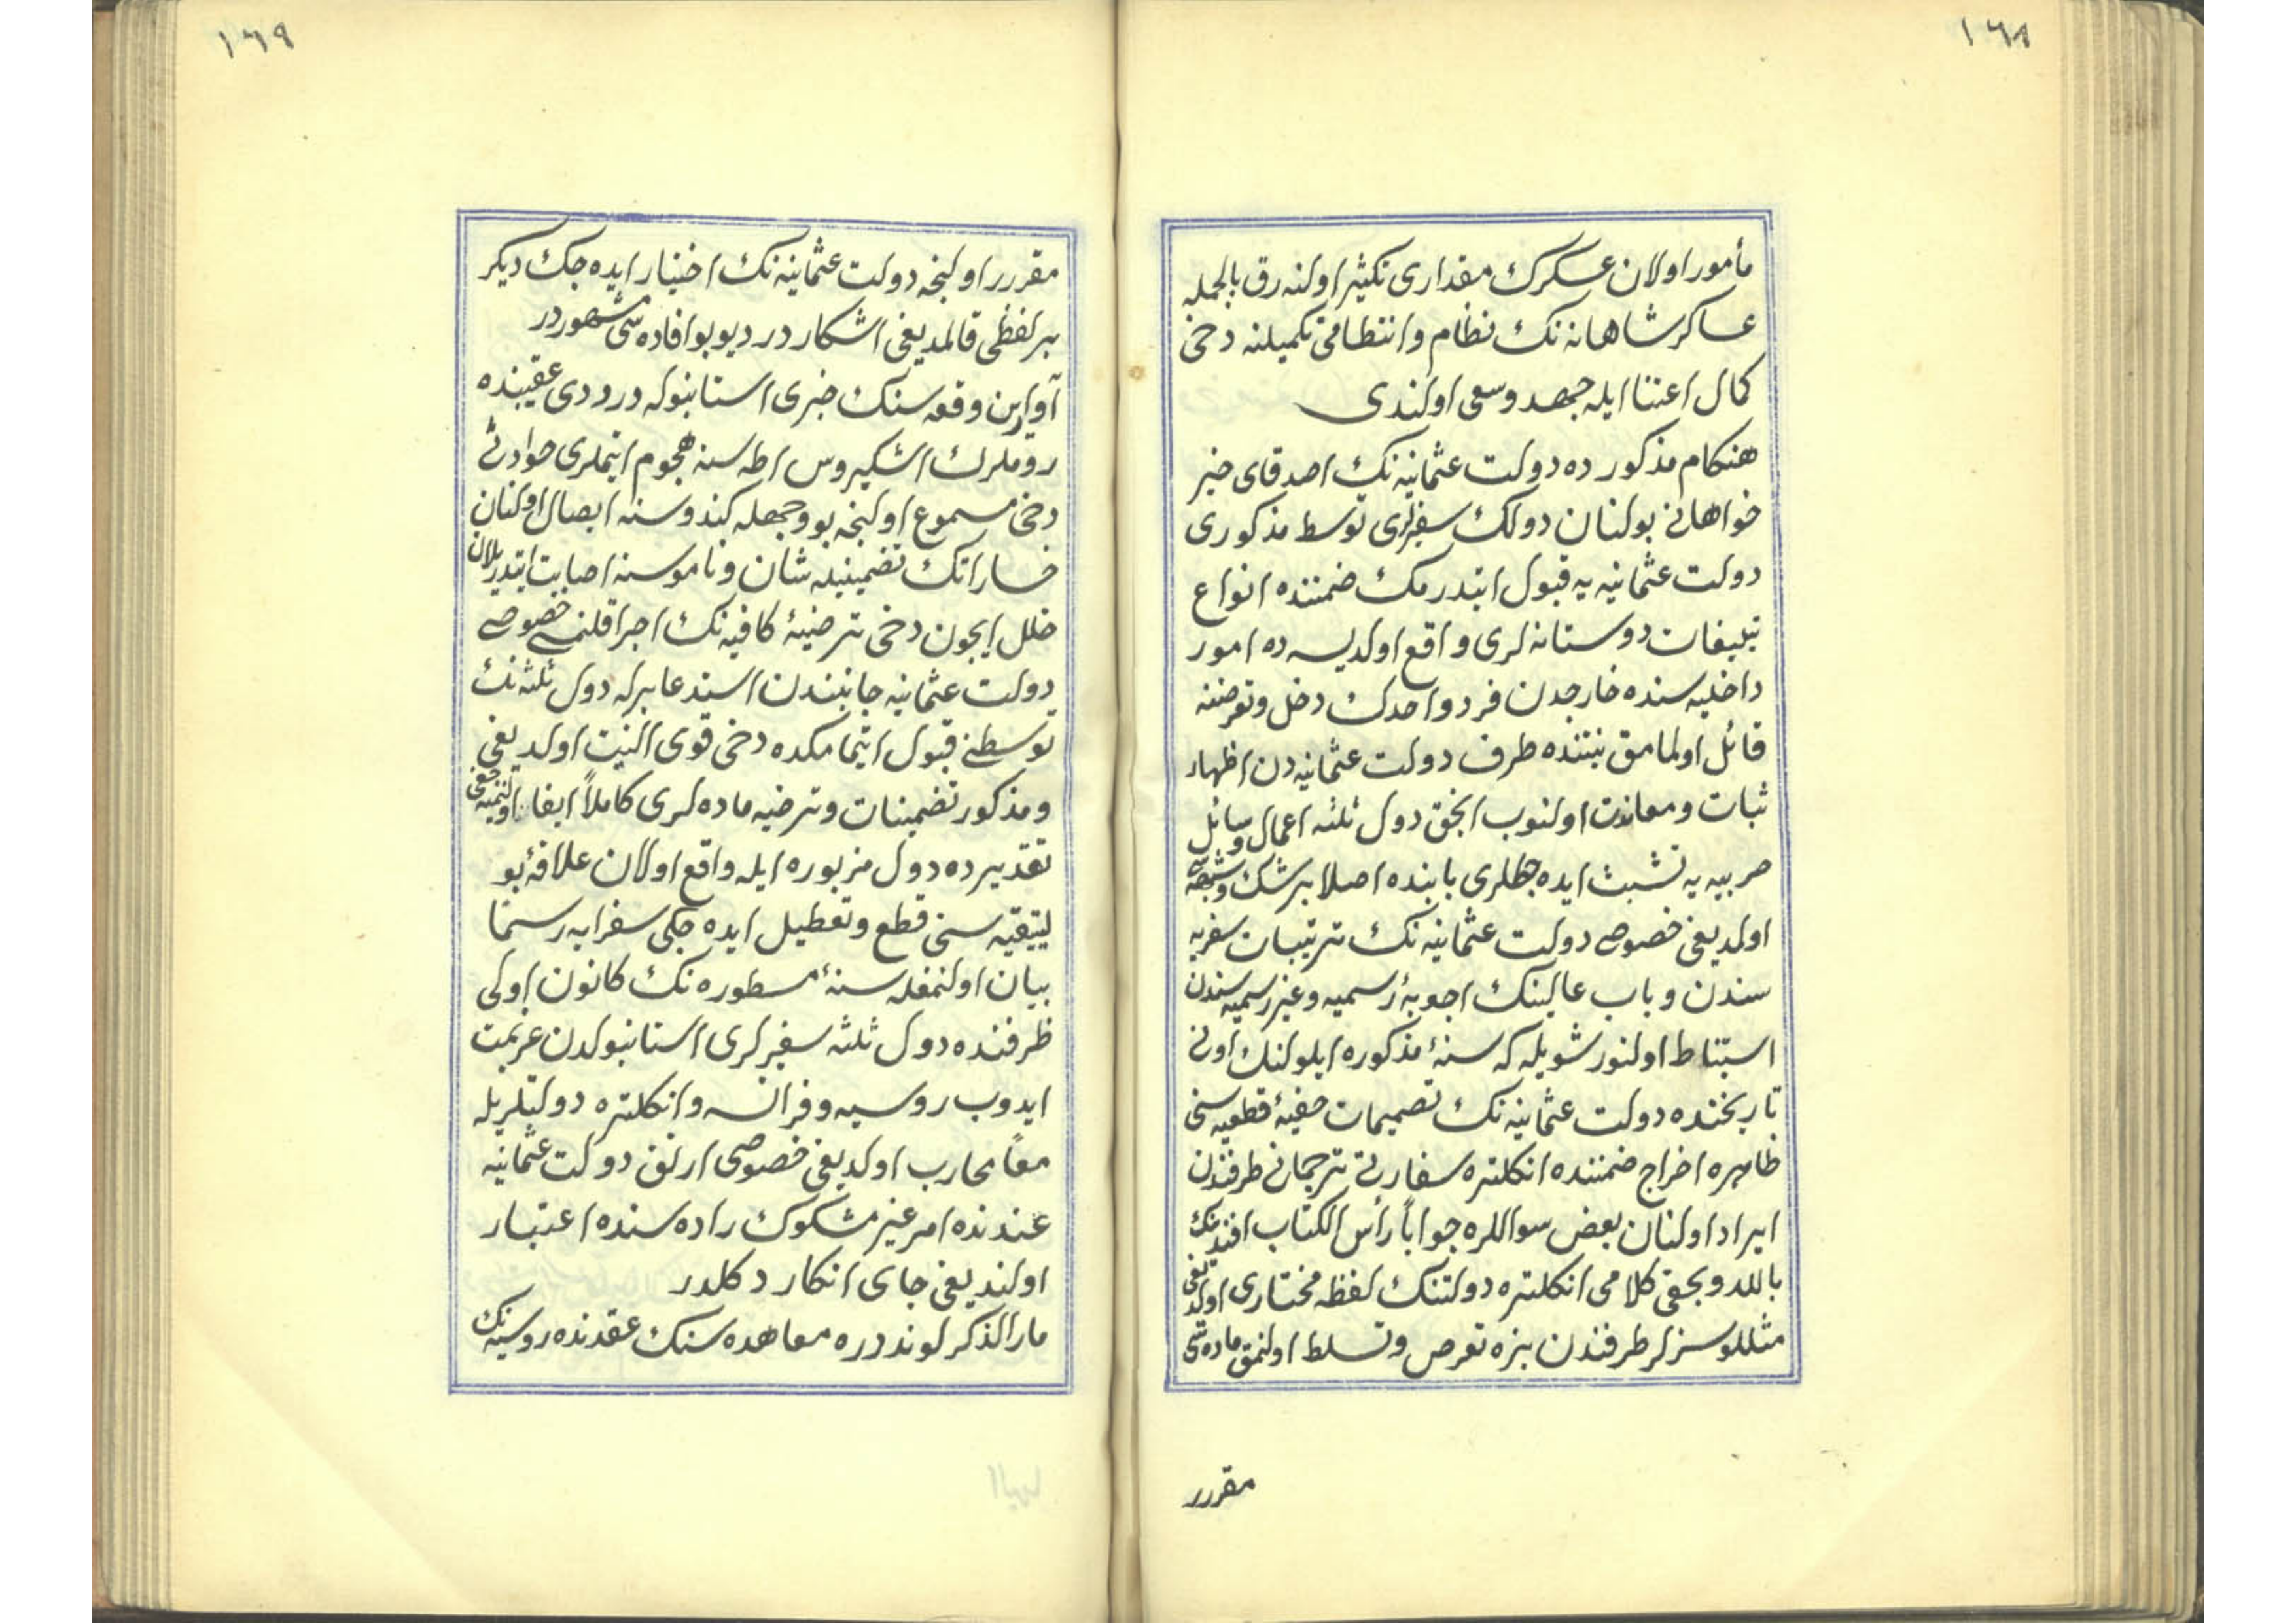 ١٦٨
مأمور اولان عسكرك مقدارى تكثير اولنه رق بالجمله
عساكر شاهانه نك نظام وانتظامى تكميلنه دخى
كمال اعتنا ايله جهد وسعى اولندى
هنكام مذكور ده دولت عثمانيه نك اصدقاى خير
خواهانى بولنان دولك سفيرلرى توسط مذكورى
دولت عثمانيه يه قبول ايتدرمك ضمننده انواع
تبليغات دوستانه لرى واقع اولديسه ده امور
داخليه سنده خارجدن فرد واحدك دخل وتعرضنه
قائل اولمامق نيتنده طرف دولت عثمانيه دن اظهار
ثبات ومعاندت اولنوب انجق دول ثلثه اعمال وسائل
حربيه يه تشبث ايده جكلرى بابنده اصلا بر شك وشبهه سى
اولمديغى خصوصى دولت عثمانيه نك ترتيبات سفريه
سندن وباب عالينك اجوبۀ رسميه وغير رسميه سندن
استنباط اولنور شويله كه سنۀ مذكوره ايلولنك اونى
تاريخنده دولت عثمانيه نك تصميمات خفيۀ قطعيه سنى
ظاهره اخراج ضمننده انكلتره سفارتى ترجمانى طرفندن
ايراد اولنان بعض سواللره جواباً رأس الكتاب افندينك
باللد وبحقى كلامى انكلتره دولتنك لفظه مختارى اولديغى
مثللو سزلر طرفندن بزه تعرض وتسلط اولنمق ماده سى
مقرر
١٦٩
مقرر اولنجه دولت عثمانيه نك اختيار ايده جك ديكر
بر لفظى قالمديغى اشكار در ديو بو افاده سى مشهور در
آوارين وقعه سنك خبرى استانبوله درودى عقيبنده
روملرك اشكيروس اطه سنه هجوم ايتملرى حوادثى
دخى مسموع اولنجه بو وجهله كندوسنه ايصال اولنان
خساراتك تضمينيله شان وناموسنه اصابت ايتديريلان
خلل ايچون دخى ترضيۀ كافيه نك اجرا قلنمسى خصوصى
دولت عثمانيه جانبندن استدعا برله دول ثلثه نك
توسطنى قبول ايتمامكده دخى قوى النيت اولديغى
ومذكور تضمينات وترضيه ماده لرى كاملاً ايفا اولنميه جغى
تقديرده دول مزبوره ايله واقع اولان علاقۀ بو
ليتقيه سنى قطع وتعطيل ايده جكى سفرايه رسمًا
بيان اولنمغله سنۀ مسطوره نك كانون اولى
ظرفنده دول ثلثه سفيرلرى استانبولدن عزيمت
ايدوب روسيه وفرانسه وانكلتره دولتلريله
معاً محارب اولديغى خصوصى ارتق دولت عثمانيه
عندنده امر غير مشكوك راده سنده اعتبار
اولنديغى جاى انكار دكلدر
مار الذكر لوندره معاهده سنك عقدنده روسيه نك